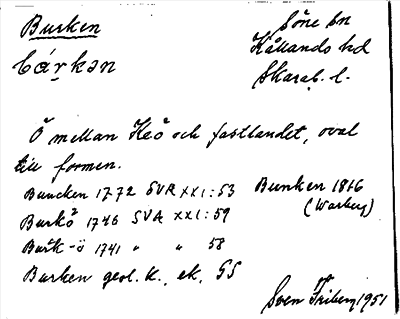 Burken
Söne sn
Kållands hd
Skarab. l.
bárkən
Ö mellan Keö och fastlandet, oval
till formen.
Buncken 1772 SVR XXI:53
Bunken 1816
(Warberg)
Burkö 1746 SVA XXI:59
Burk-ö 1741 " " 58
Burken geol. k., ek. GS
Sven Friberg 1951